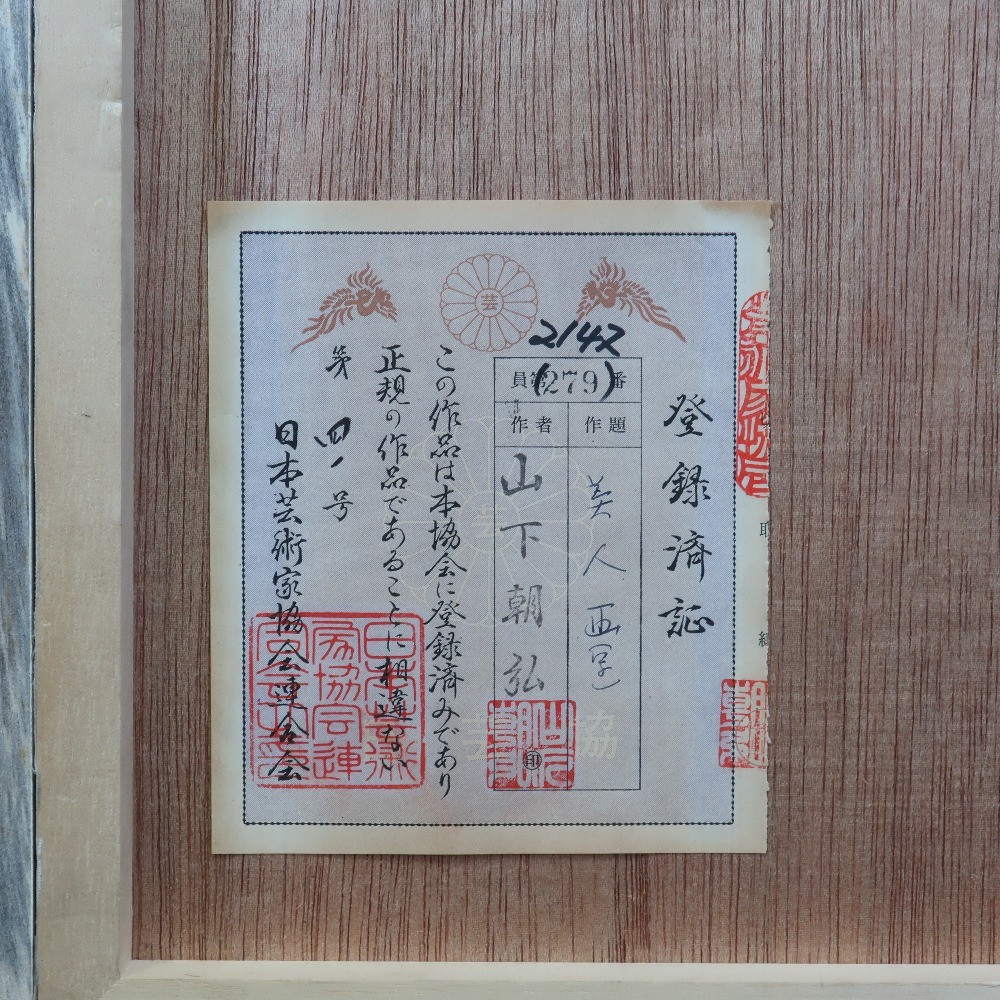 登録済証
2142
員第(279)番
作題
美人画
作者
山下朝弘
印
この作品は本協会に登録済みであり
正規の作品であることに相違ない
第四一号
日本芸術家協会連合会
芸
芸
芸協